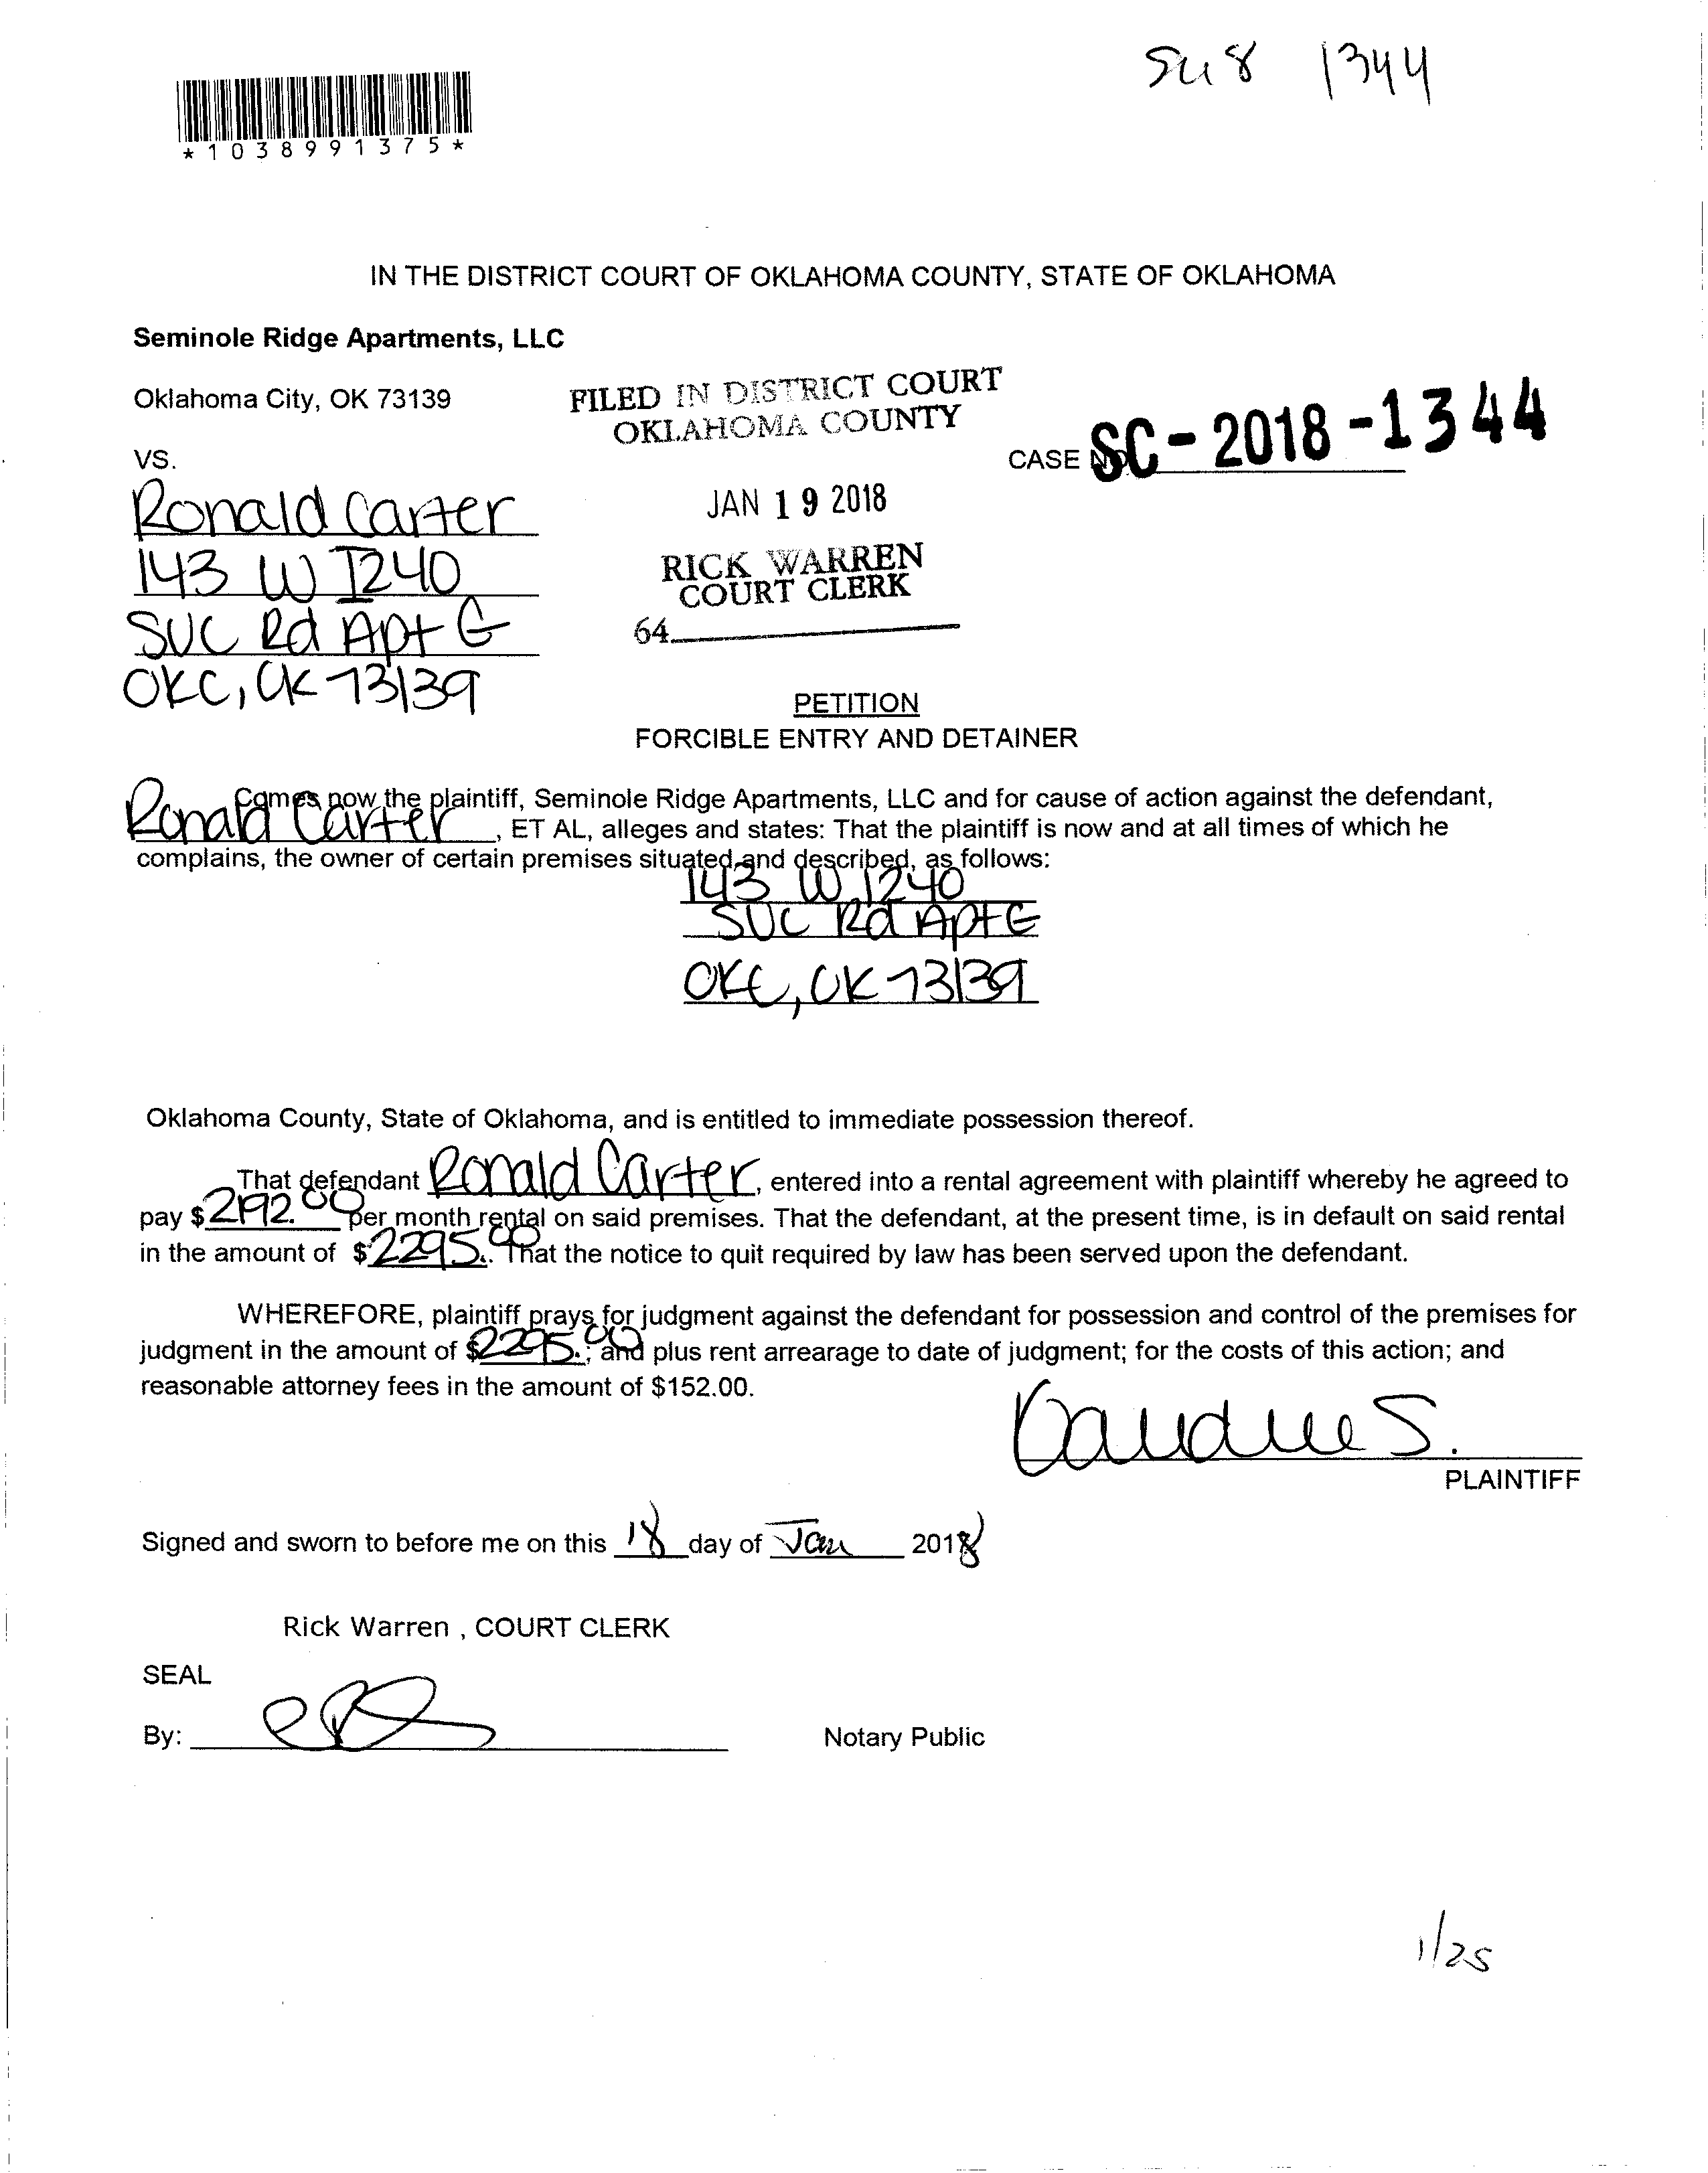 SC18 1344
*1038991375*
IN THE DISTRICT COURT OF OKLAHOMA COUNTY, STATE OF OKLAHOMA
Seminole Ridge Apartments, LLC
Oklahoma City, OK 73139
FILED IN DISTRICT COURT
OKLAHOMA COUNTY
VS.
CASE NO. SC-2018-1344
Ronald Carter
JAN 19 2018
143 W I240
RICK WARREN
COURT CLERK
SVC Rd Apt G
64
OKC, OK 73139
PETITION
FORCIBLE ENTRY AND DETAINER
Comes now the plaintiff, Seminole Ridge Apartments, LLC and for cause of action against the defendant,
Ronald Carter, ET AL, alleges and states: That the plaintiff is now and at all times of which he
complains, the owner of certain premises situated and described, as follows:
143 W I240
SVC Rd Apt G
OKC, OK 73139
Oklahoma County, State of Oklahoma, and is entitled to immediate possession thereof.
That defendant Ronald Carter, entered into a rental agreement with plaintiff whereby he agreed to
pay $2192.00 per month rental on said premises. That the defendant, at the present time, is in default on said rental
in the amount of $2295.00. That the notice to quit required by law has been served upon the defendant.
WHEREFORE, plaintiff prays for judgment against the defendant for possession and control of the premises for
judgment in the amount of $2295.00; and plus rent arrearage to date of judgment; for the costs of this action; and
reasonable attorney fees in the amount of $152.00.
Candice S.
PLAINTIFF
Signed and sworn to before me on this 18 day of Jan 2018
Rick Warren , COURT CLERK
SEAL
By:
Notary Public
1/25